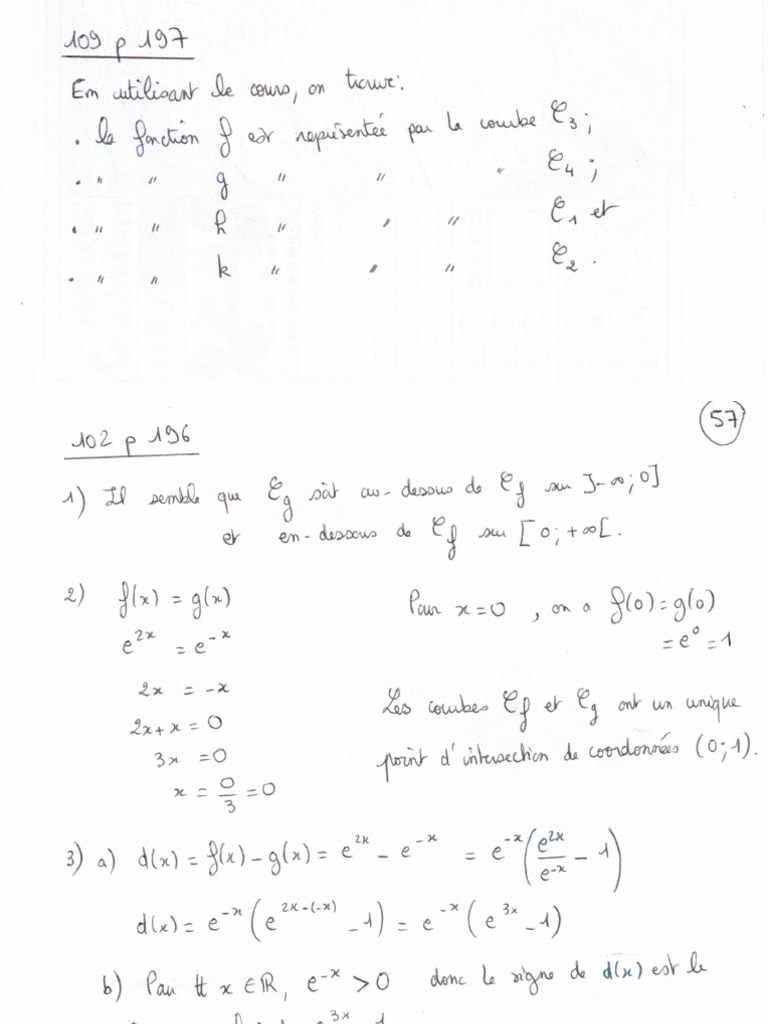 109 p 197
En utilisant le cours, on trouve:
• la fonction f est représentée par la courbe C₃;
• " " g " " " C₄;
• " " h " " " C₁ et
• " " k " " " C₂.
57
102 p 196
1) Il semble que Cg soit au-dessus de Cf sur ]-∞;0]
et en-dessous de Cf sur [0;+∞[.
2) f(x) = g(x)
e^{2x} = e^{-x}
2x = -x
2x+x = 0
3x = 0
x = 0/3 = 0
Pour x=0, on a f(0)=g(0)
= e⁰ = 1
Les courbes Cf et Cg ont un unique
point d'intersection de coordonnées (0;1).
3) a) d(x) = f(x) - g(x) = e^{2x} - e^{-x} = e^{-x}(e^{2x}/e^{-x} - 1)
d(x) = e^{-x}(e^{2x-(-x)} - 1) = e^{-x}(e^{3x} - 1)
b) Pour tt x ∈ ℝ, e^{-x} > 0 donc le signe de d(x) est le